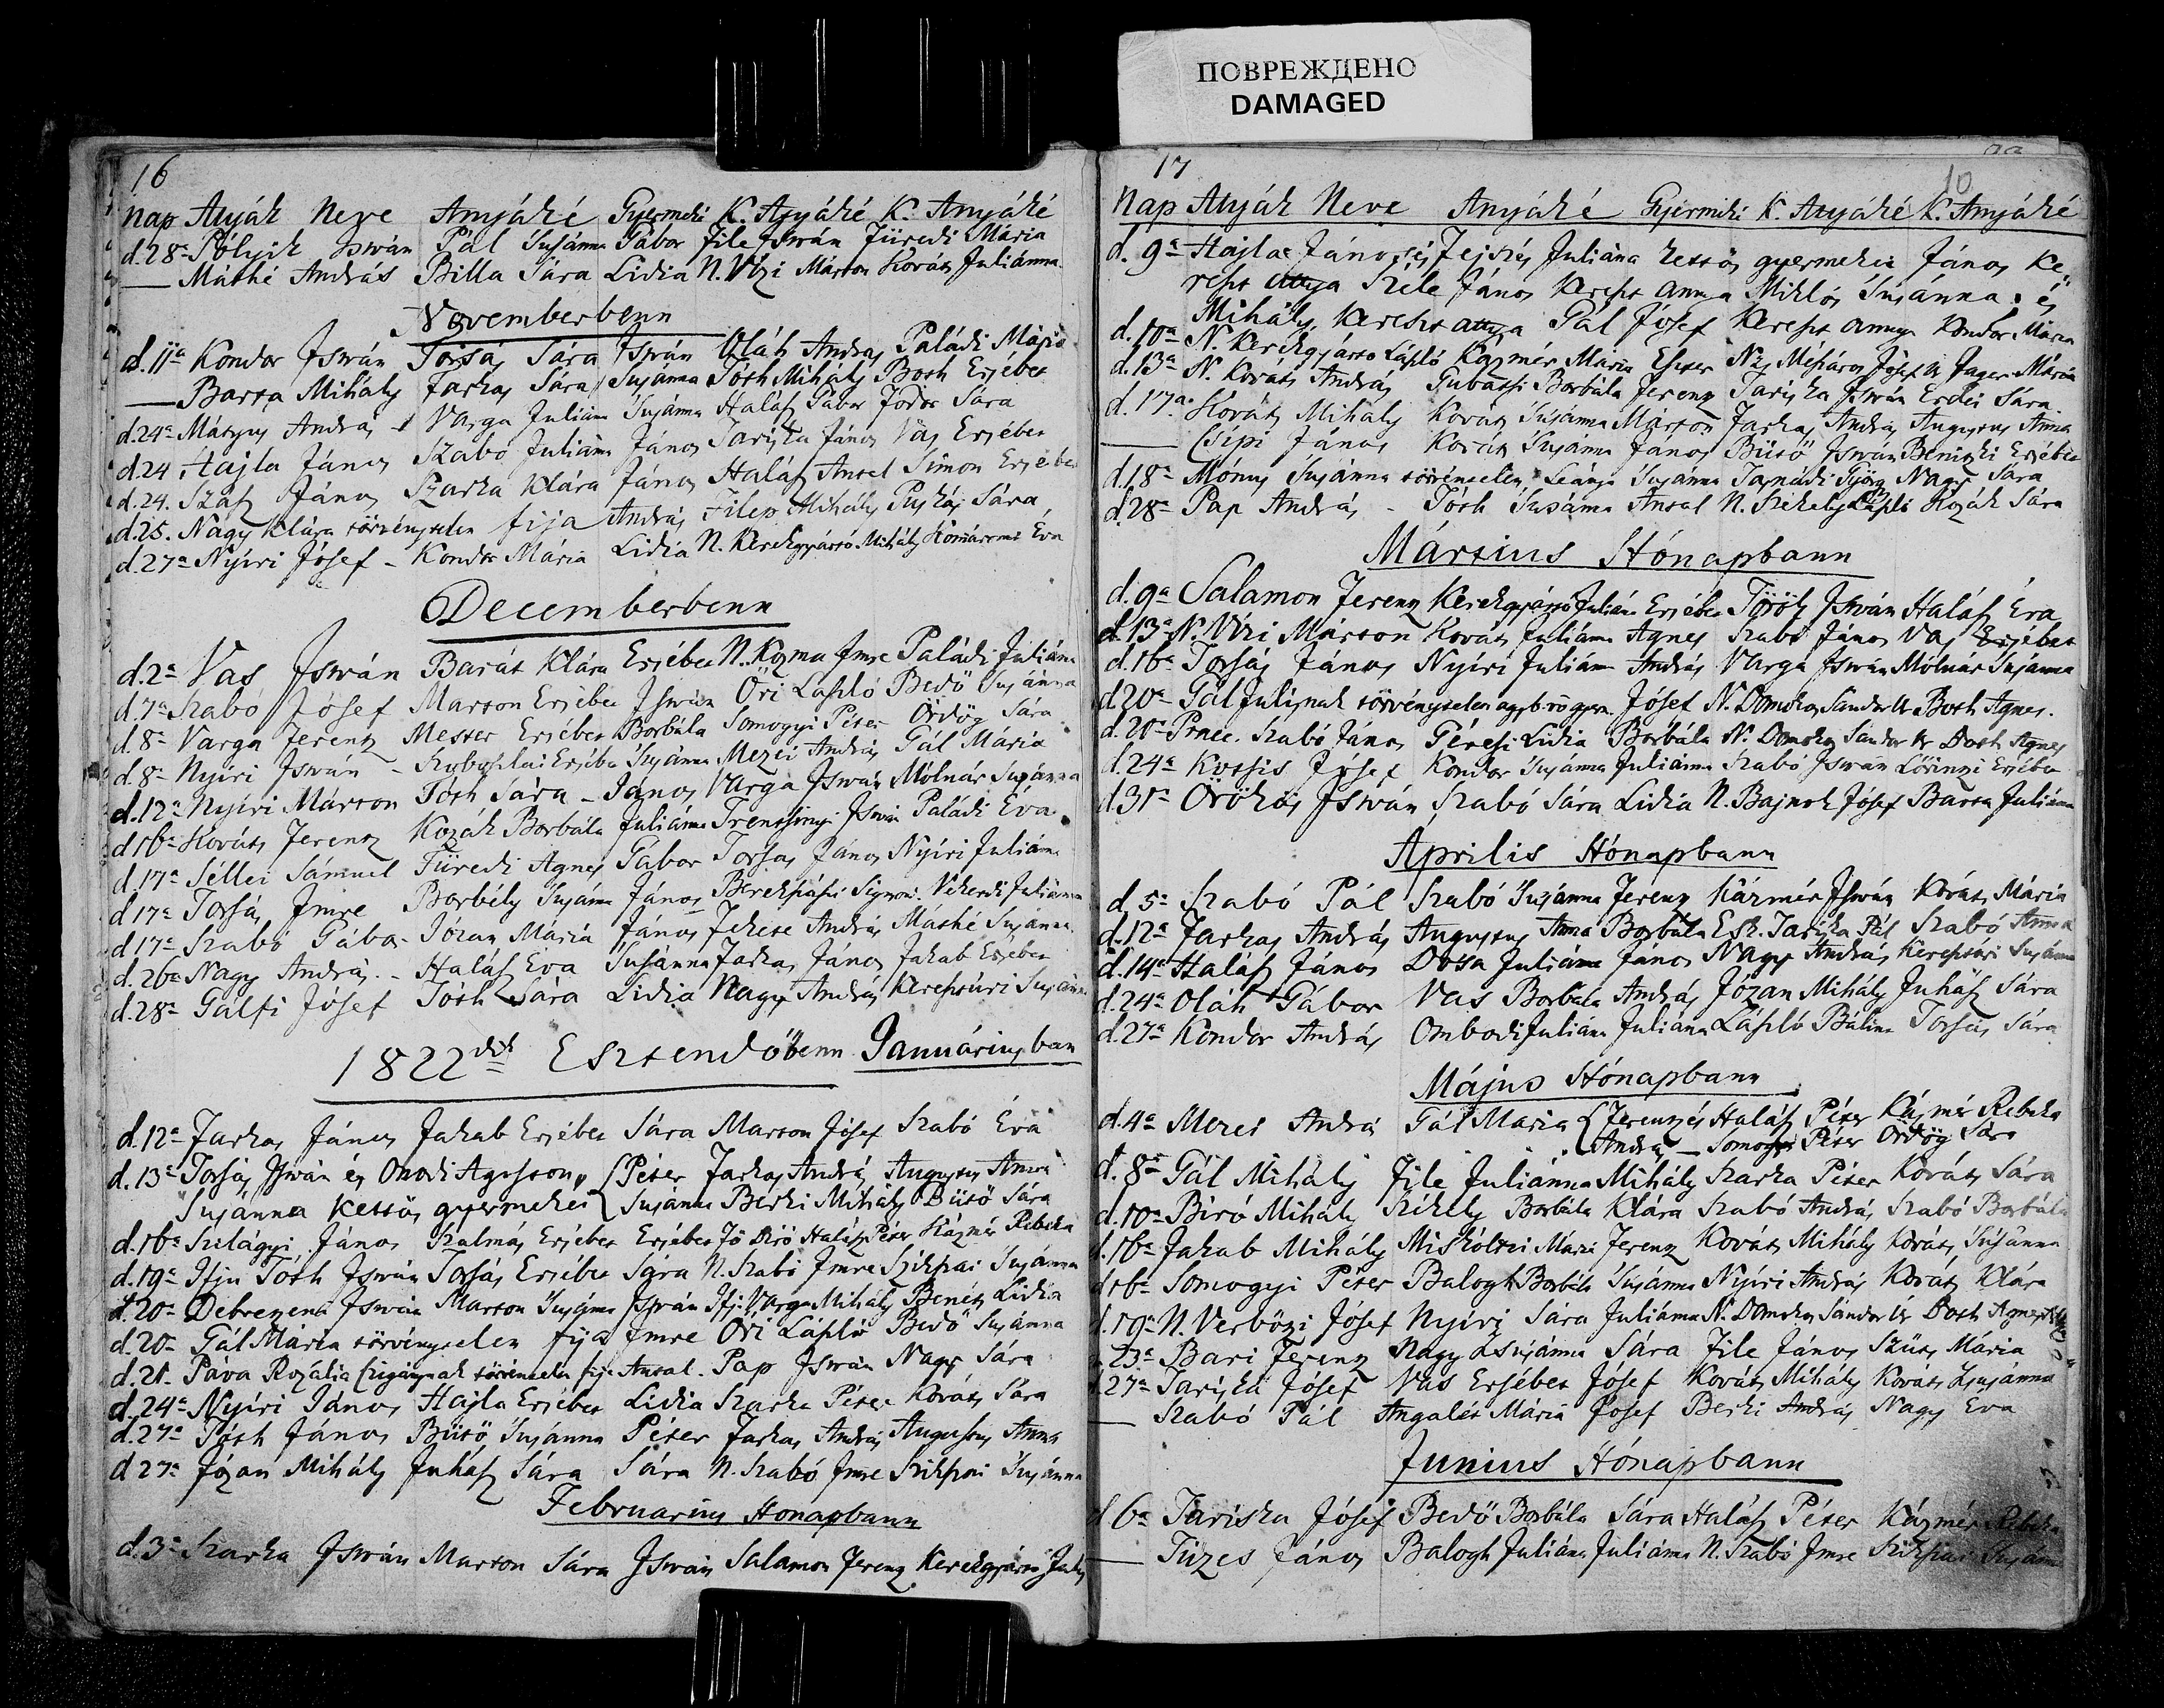 ПОВРЕЖДЕНО
DAMAGED
16
Nap Atyák Neve Anyáké Gyermeki K. Atyáké K. Anyáké
d. 28a Pólyik István Pál Susánna Gábor File István Füredi Mária
— Máthé András Billa Sára Lidia N. Vizi Márton Kováts Juliánna
Novemberbenn
d. 11a Kondor István Torsás Sára István Oláh András Paládi Mária
— Barta Mihály Farkas Sára Susánna Tóth Mihály Both Ersébet
d. 24a Mátyus András Varga Juliána Susánna Halász Gábor Fodor Sára
d. 24 Hajla János Szabó Juliána János Tariska János Vas Ersébet
d. 24. Szász János Szarka Klára János Halász Antal Simon Ersébet
d. 25. Nagy Klára törvénytelen fija András Filep Mihály Puskás Sára
d. 27a Nyíri Jósef - Kondor Mária Lidia N. Kerekgyártó Mihály Komáromi Éva
Decemberbenn
d. 2a Vas István Barát Klára Ersébet N. Kozma Imre Paládi Juliána
d. 7a Szabó Jósef Marton Ersébet István Öri László Bedö Susánna
d. 8a Varga Ferentz Mester Ersébet Borbála Somogyi Péter Ördög Sára
d. 8a Nyiri István - Szoboszlai Ersébe Susánna Mezei András Gál Mária
d. 12a Nyiri Márton Tóth Sára - János Varga István Mólnár Susánna
d. 16a Kováts Ferentz Kozák Borbála Juliánna Trentsinyi István Paládi Éva
d. 17a Séllei Sámuel Füredi Agnes Gábor Torsas János Nyíri Juliánna
d. 17a Torsás Imre Borbély Susánna János Berekszászi Sigmon. Vekerdi Juliánna
d. 17a Szabó Gábor Józan Mária János Fekete András Máthé Susanna
d. 26a Nagy András - Halász Eva Susánna Farkas János Jakab Ersébet
d. 28a Gálfi Jósef Tóth Sára Lidia Nagy András Keresztúri Susánna
1822dik Esztendőbenn Januáriusban
d. 12a Farkas János Jakab Ersébet Sára Marton Jósef Szabó Éva
d. 13a Torsás István és Onodi Agoston Péter Farkas András Augustus Anna
Susánna kettős gyermekei Susánna Berki Mihály Bütö Sára
d. 16a Szilágyi János Szalmás Ersébet Ersébet Fö Biró Halász Péter Kázmér Rebeka
d. 19a Ifju Tóth István Torsás Ersébet Sára N. Szabó Imre Szikszai Susánna
d. 20a Debretzeni István Marton Susánna István Ifj. Varga Mihály Benéts Lidia
d. 20a Gál Mária törvénytelen fija Imre Öri László Bedö Susánna
d. 21. Páva Rozália tzigánynak törvénytelen fija Antal. Pap István Nagy Sára
d. 24a Nyíri János Hajla Ersébet Lidia Szarka Péter Kováts Sára
d. 27a Tóth János Bütö Susánna Péter Farkas András Augustus Anna
d. 27a Józan Mihály Juhász Sára Sára N. Szabó Imre Szikszai Susánna
Februarius Hónapbann
d. 3a Szarka István Marton Sára István Salamon Ferentz Kerekgyártó Julis
17
10
Nap Atyák Neve Anyáké Gyermeki K. Atyáké K. Anyáké
d. 9a Hajla János és Fejszés Juliána kettös gyermekei János Ke-
reszt attya Széle János Kereszt annya Miklós Susánna. és
Mihály, kereszt attya Pál Jósef Kereszt annya Kondor Mária
d. 10a N. Kerekgyártó László Kazmér Mária Eszter Ns Mészáros Jósef N Jager Mária
d. 13a N. Kováts András Gubatsi Borbála Ferentz Tariska István Erdei Sára
d. 17a Kováts Mihály Kováts Susánna Márton Farkas András Augustus Anna
— Csipi János Kováts Susánna János Bütö István Benitzki Ersébet
d. 18a Mónus Susánna törvénytelen Leánya Susánna Tarnádi Györg Nagy Sára
d. 28a Pap András - Tóth Susánna Antal N. Szekely László Kozák Sára
Mártius Hónapbann
d. 9a Salamon Ferentz Kerekgyártó Juliána Ersébet Török István Halász Éva
d. 13a N. Vizi Márton Kováts Juliánna Agnes Szabó János Vas Ersébet
d. 16a Torsás János Nyíri Juliánna András Varga István Mólnár Susánna
d. 20a Gál Julisnak törvénytelen ágyb. rö gyer. Jósef N. Domokos Sándor Ur Both Agnes.
d. 20a Praec. Szabó János Géresi Lidia Borbála N. Domokos Sándor Ur Both Agnes
d. 24a Kotsis Jósef Kondor Susánna Juliánna Szabó István Lörintzi Ersébet
d. 31a Örökös István Szabó Sára Lidia N. Bajnok Jósef Barta Juliánna
Aprilis Hónapbann
d. 5a Szabó Pál Szabó Susánna Ferentz Kázmér István Kováts Mária
d. 12a Farkas András Augustus Anna Borbála Esk. Tariska Pál Szabó Anna
d. 14a Halász János Dosa Juliánna János Nagy András Keresztúri Susánna
d. 24a Oláh Gábor Vas Borbála András Józan Mihály Juhász Sára
d. 27a Kondor András Ombodi Juliána Juliána László Bálint Torsás Sára
Május Hónapbann
d. 4a Mezei András Gál Mária Ferentz és Halász Péter Kázmér Rebeka
András — Somogyi Péter Ördög Sára
d. 8a Gál Mihály File Juliánna Mihály Szarka Péter Kováts Sára
d. 10a Biró Mihály Székely Borbála Klára Szabó András Szabó Borbála
d. 16a Jakab Mihály Miskóltzi Mária Ferentz Kováts Mihály Kováts Susánna
d. 16a Somogyi Péter Balogh Borbála Susánna Nyíri András Kováts Klára
d. 19a N. Verbözi Jósef Nyíri Sára Juliánna N. Domokos Sándor Ur Both Agnes
d. 23a Bari Ferentz Nagy Susánna Sára File János Szüts Mária
d. 27a Tariska Jósef Vas Ersébet Jósef Kováts Mihály Kováts Zsusánna
— Szabó Pál Angalét Mária Jósef Berki András Nagy Éva
Junius Hónapbann
d. 6a Tariska Jósef Bedö Borbála Sára Halász Péter Kázmér Rebeka
— Tüzes János Balogh Juliána Juliánna N. Szabó Imre Szikszai Susánna